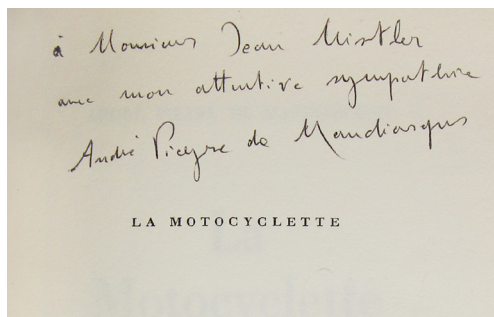 à Monsieur Jean Mistler
avec mon attentive sympathie
André Pieyre de Mandiargues
LA MOTOCYCLETTE
La
Motocyclette